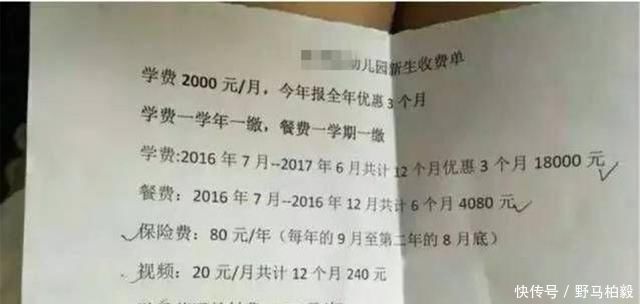 幼儿园新生收费单
学费 2000 元/月，今年报全年优惠 3 个月
学费一学年一缴，餐费一学期一缴
学费:2016 年 7 月--2017 年 6 月共计 12 个月优惠 3 个月 18000 元
餐费：2016 年 7 月--2016 年 12 月共计 6 个月 4080 元
保险费：80 元/年（每年的 9 月至第二年的 8 月底）
视频：20 元/月共计 12 个月 240 元
快传号 / 野马柏毅